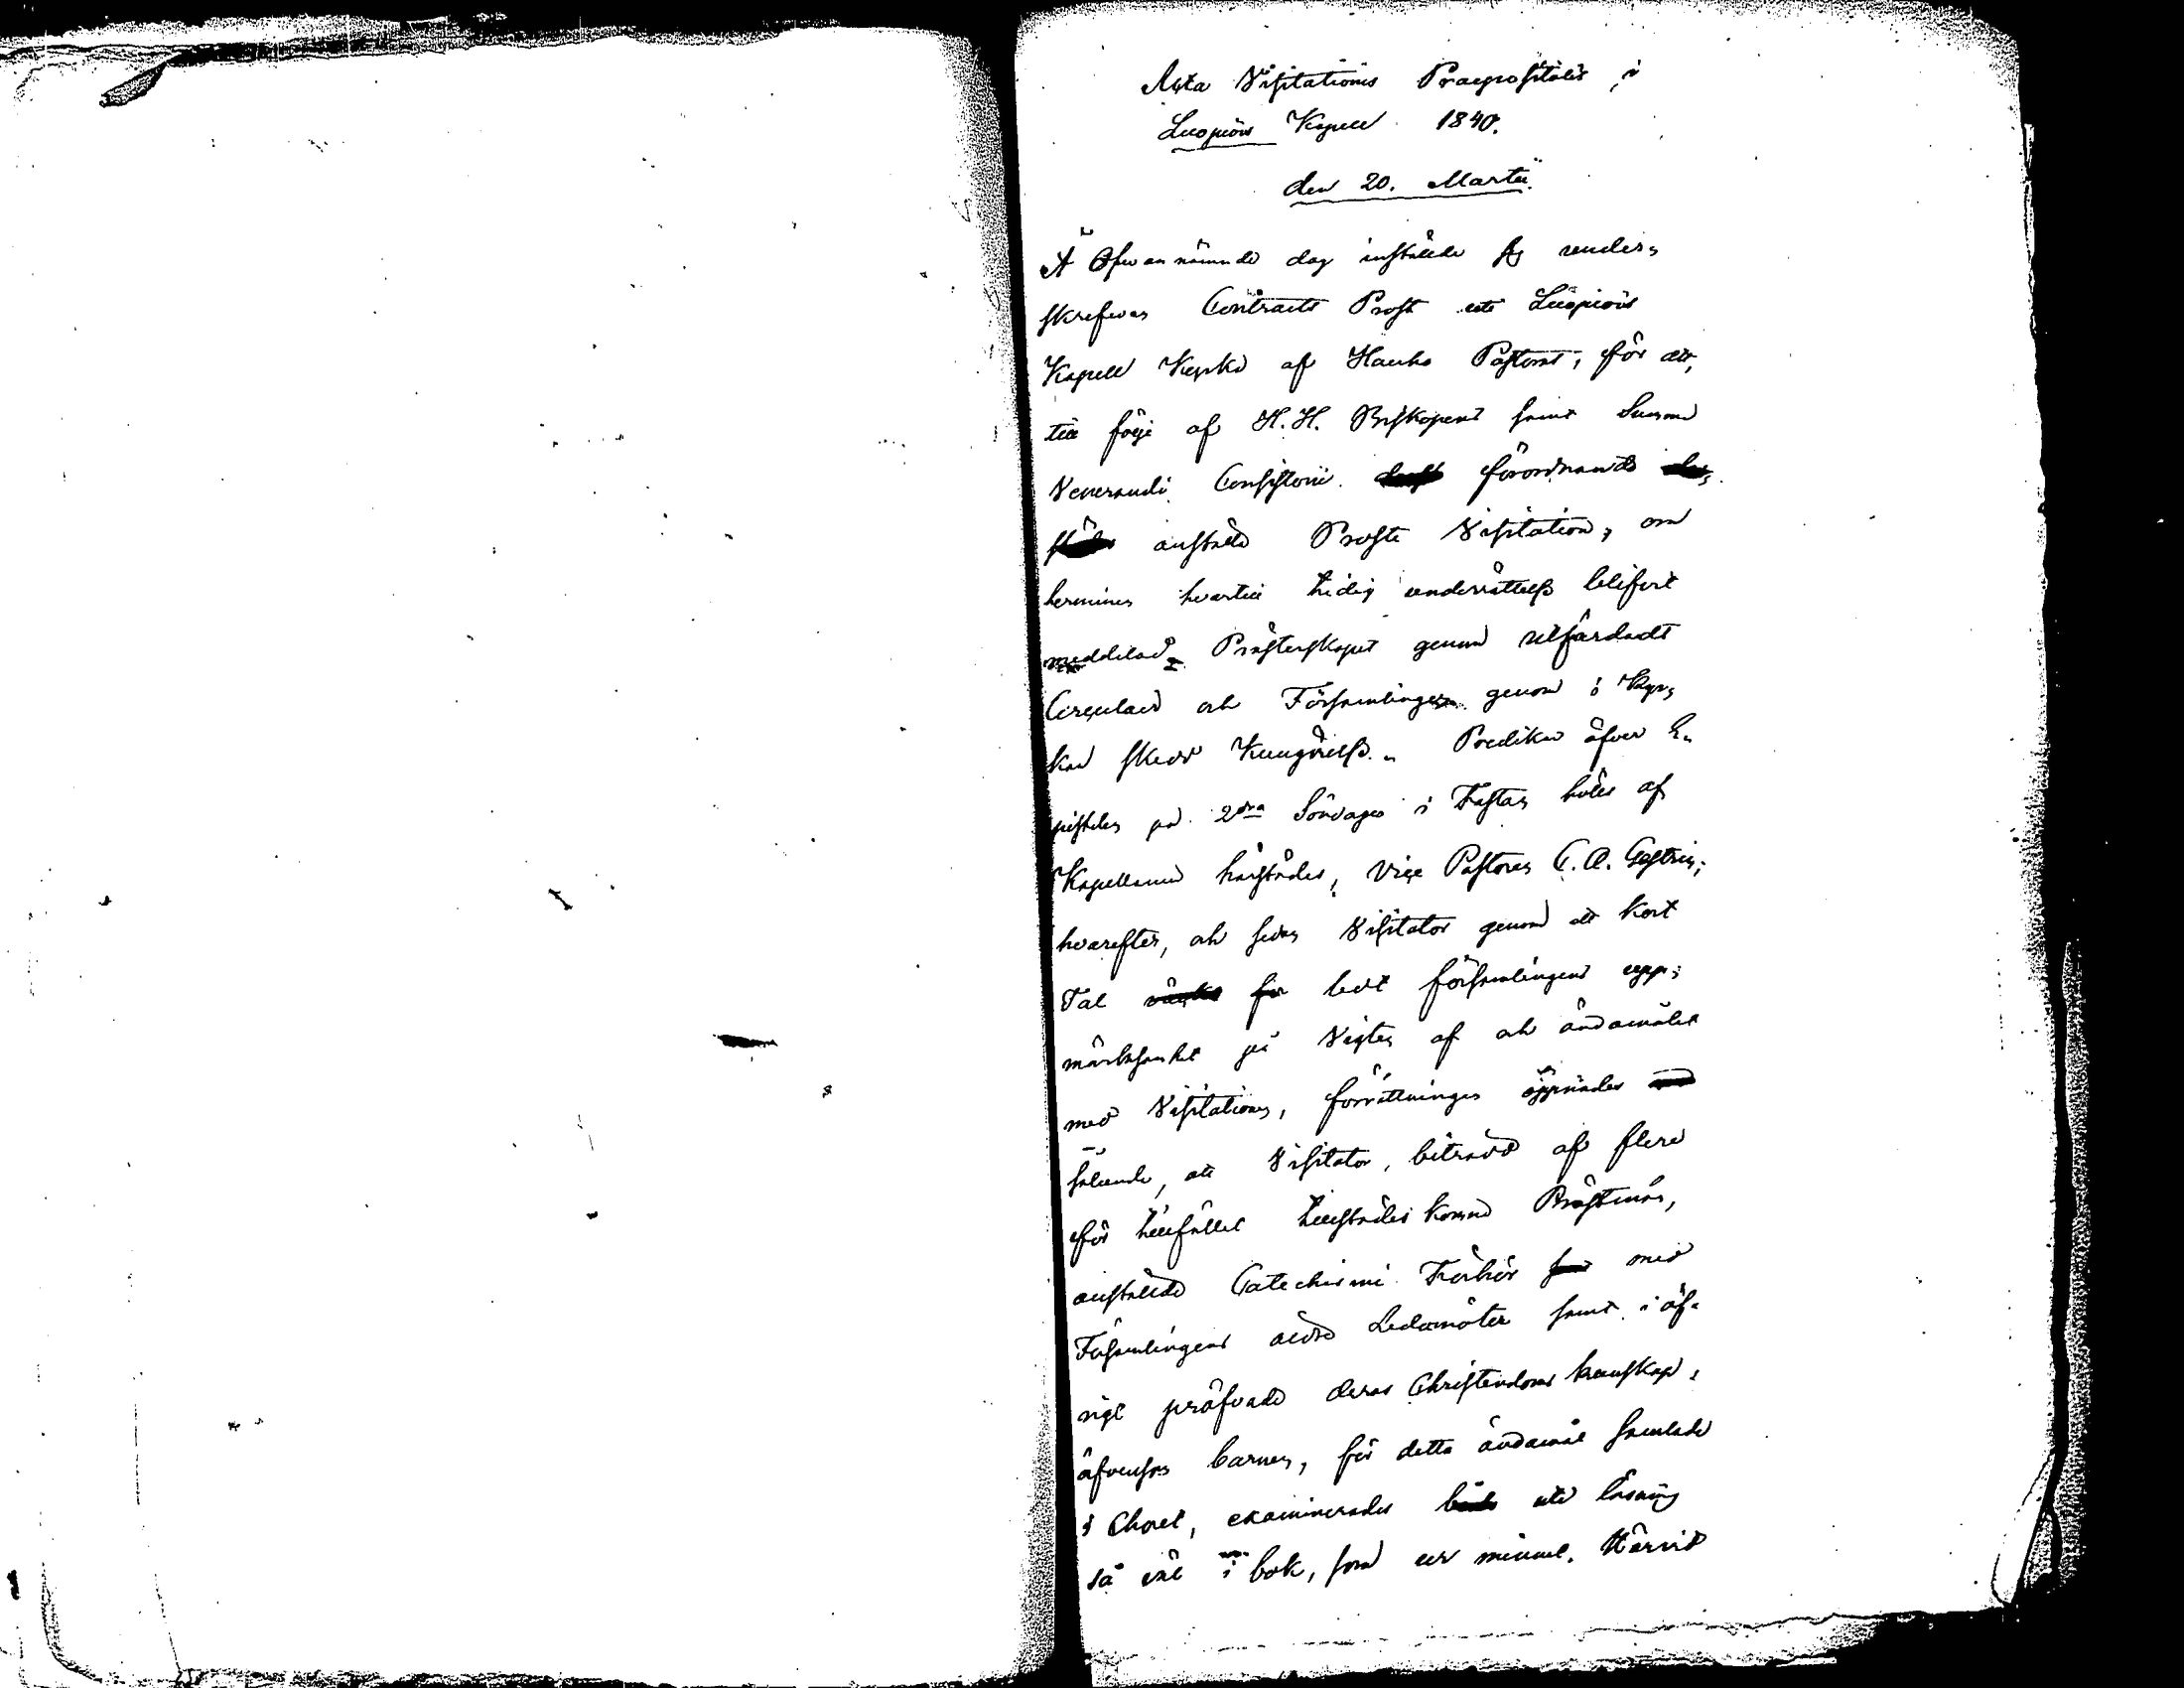 Acta Visitationis Praepositalis i
Luopiois Kapell 1840.
den 20. Martii.
Å Ofwannämnde dag inställde sig under„
skrefven Contracts Prost uti Luopiois
Kapell Kyrka af Hauho Pastorat, för att,
till följe af H. H. Biskopens samt Summe
Venerandi Consistorii förordnande
anställa Prosts Visitation, om
hvartill tidig underrättelse blifvit
meddelad Prästerskapet genom utfärdadt
Circulair och Församlingen genom i Kyr„
kan skedd Kungörelse. Predikan öfver E„
pistelen på 2dra Söndagen i Fastan hölls af
Kapellanen härstädes, Vice Pastoren C. A. Gestrin;
hvarefter, och sedan Visitator genom ett kort
Tal ledt församlingens upp„
märksamhet på Vigten af och ändamålet
med Visitationen, förrättningen öppnades
sålunda, att Visitator, biträdd af flere
för tillfället tillstädes komne Prästmän,
anställde Catechismi Förhör med
Församlingens äldre Ledamöter samt i öf„
rigt pröfvade deras Christendoms kunskap,
äfvensom barnen, för detta ändamål samlade
i Choret, examinerades uti läsning
så väl i bok, som ur minnet. Härvid